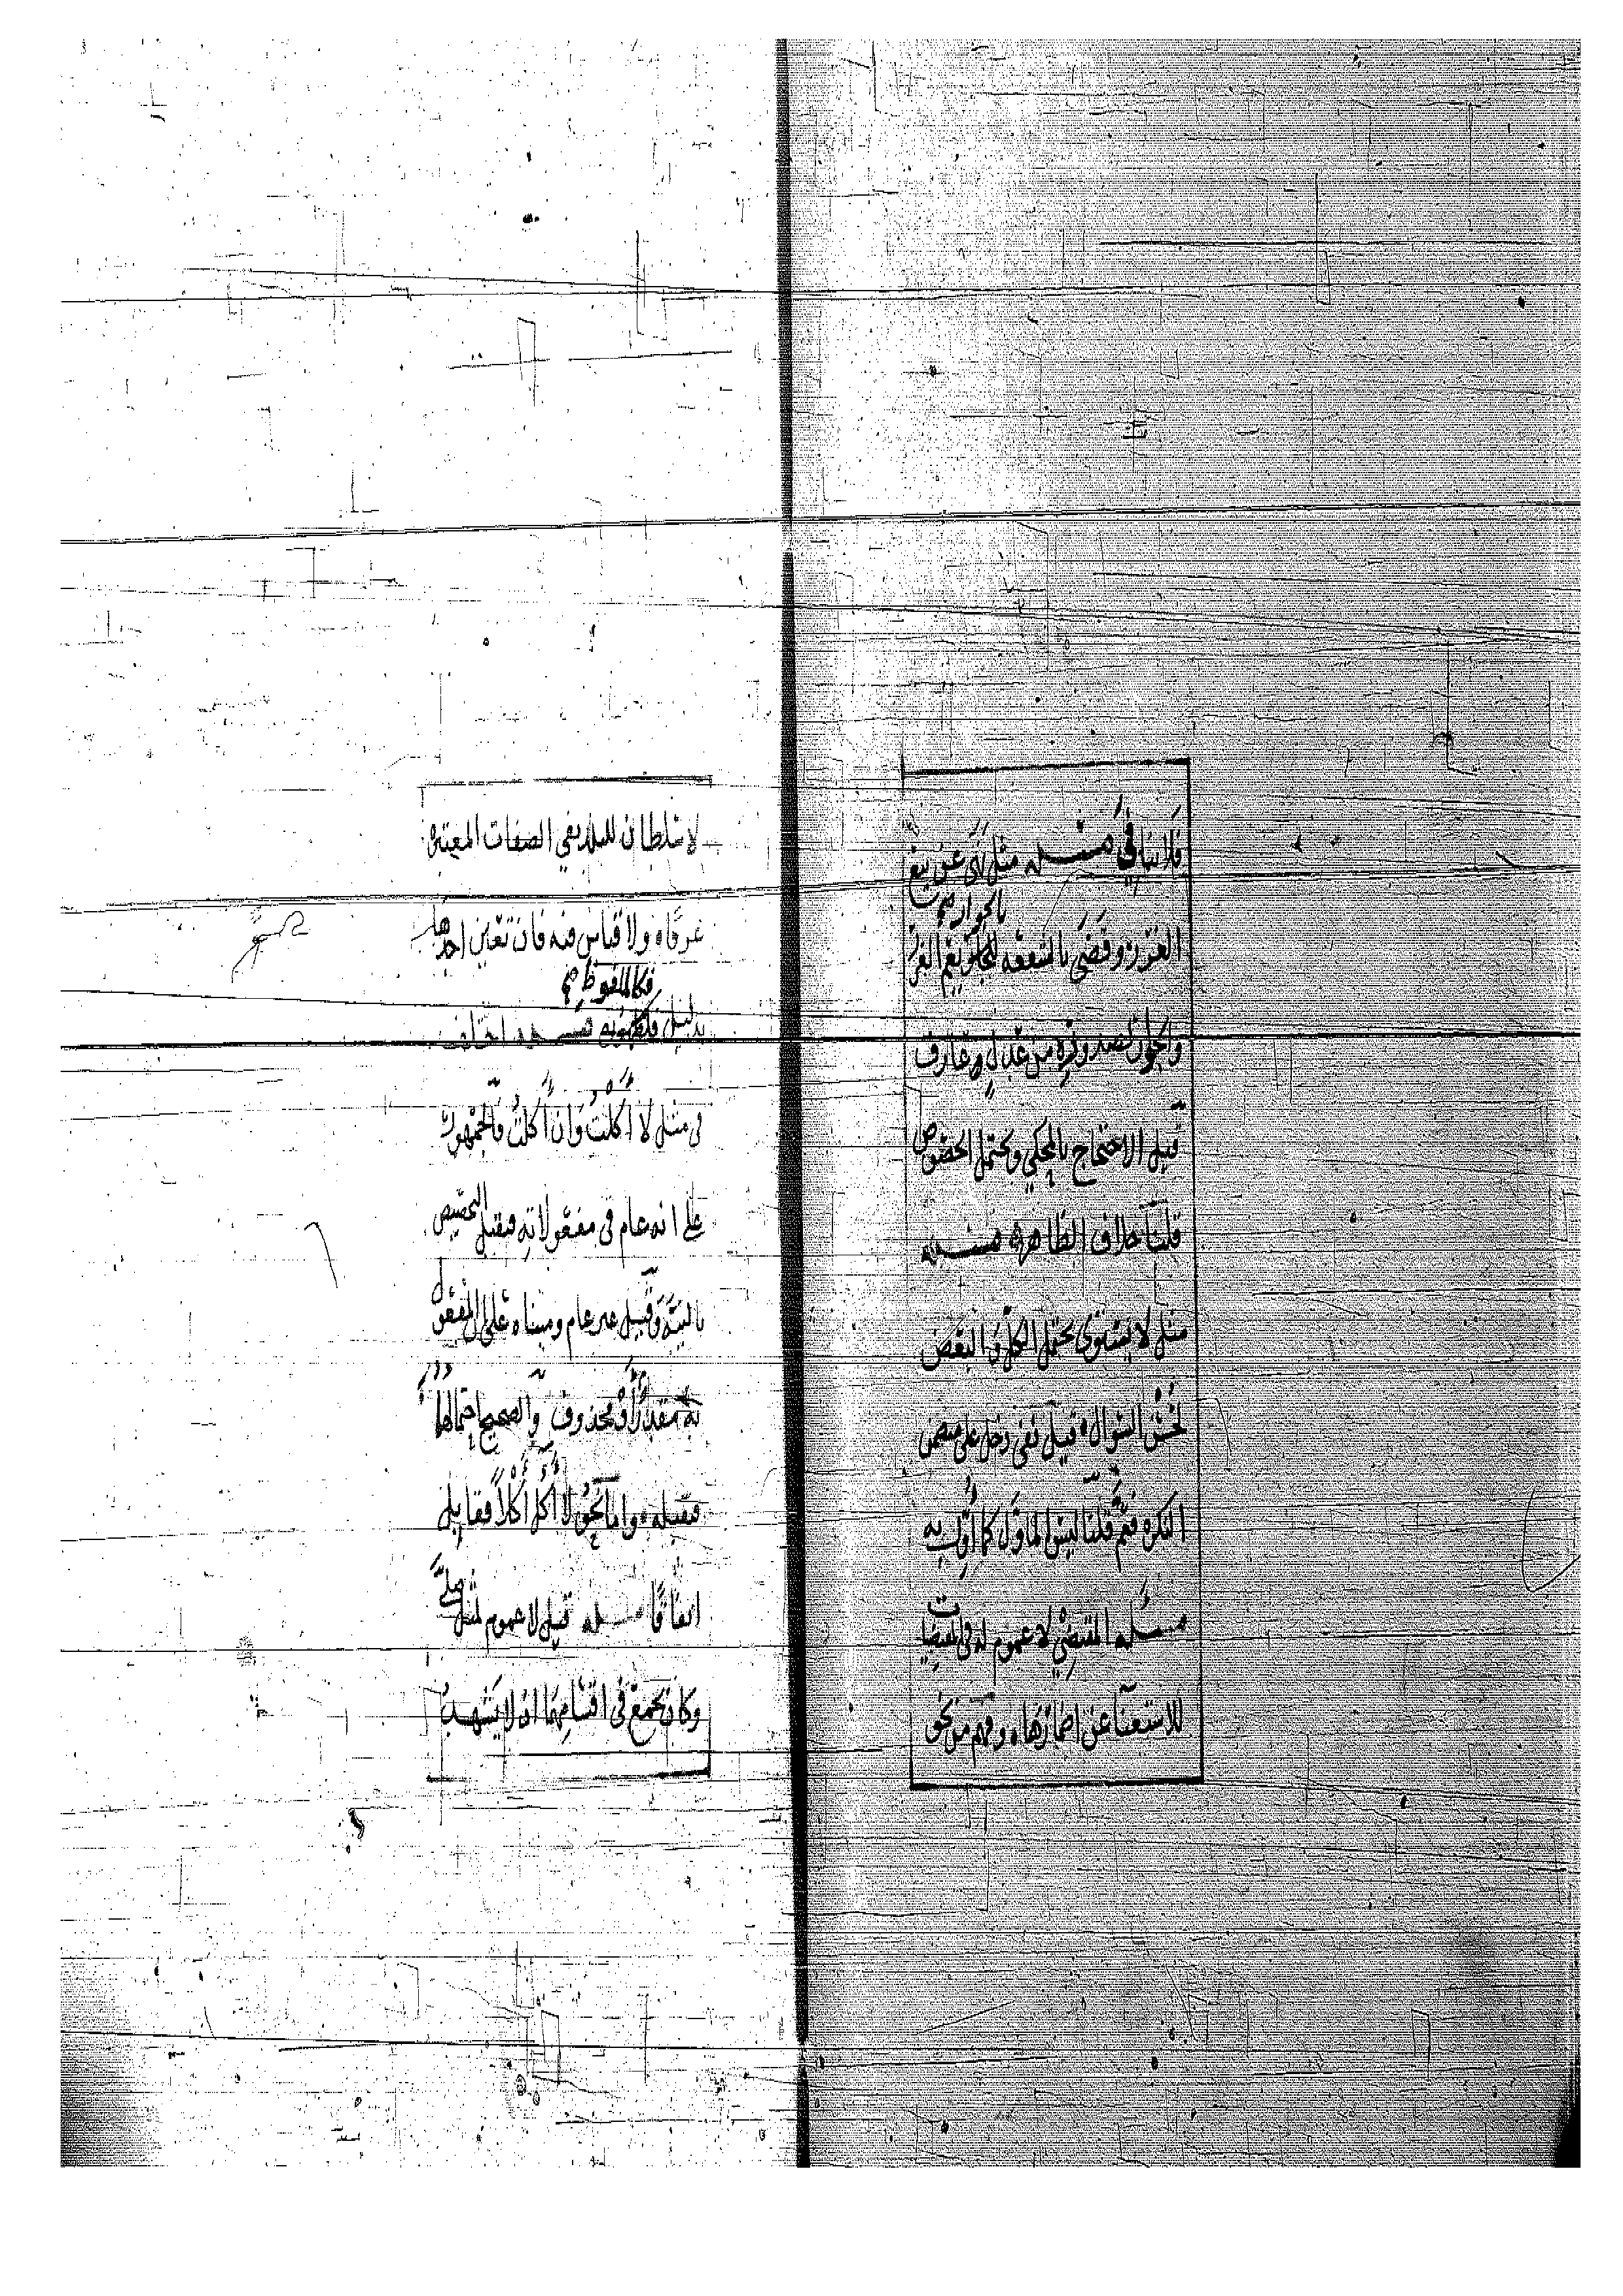 فلا ينافي مسئله مثل نهى عن بيع
الغرر وقضى بالشفعة للجار يعم الغرر
بالجوار صح
والجار لصدوره من عدل عارف
قيل الاحتجاج بالمحكي ويحتمل الخصوص
قلنا خلاف الظاهر مسئله
مثل لا يستوى يحتمل الكل والبعض
لحسن السؤال قيل نفى دخل على متضمن
النكره فعم قلنا ليس الماول كما أول به
مسئله المقتضي لا عموم له في المقتضيات
للاستغنا عن اضمارها وفهم من نحو
لا سلطان للبلد نفي الصفات المعتبره
عرفا ولا قياس فيه فان تعين احدها
فكالملفوظ صح
بدليل مسئله اختلف
في مثل لا اكلت وان اكلت فالجمهور
على انه عام في مفعولاته فيقبل التخصيص
بالنية وقيل غير عام ومبناه على ان المفعول
به مقدر أو محذوف والصحيح احتمالها
فيقبله واما نحو لا آكل أكلاً فقابل
اتفاقًا مسئله قيل لا عموم لمثل صلى
وكان يجمع في اقسامهما اذ لا يشهد